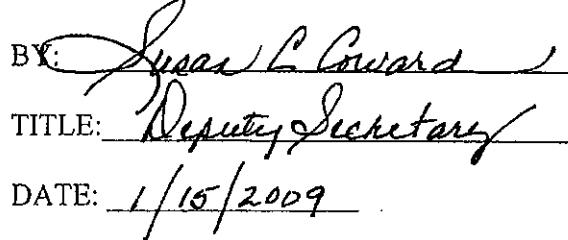 BY: Susan C Coward
TITLE: Deputy Secretary
DATE: 1/15/2009